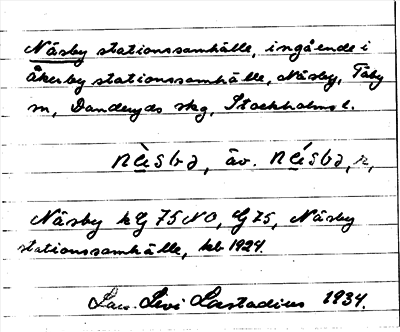 Näsby stationssamhälle, ingående i
Åkerby stationssamhälle, Näsby, Täby
sn, Danderyds skg, Stockholms l.
nè̱sbə, äv. né̱sbə,
Näsby kG 75 NO, G 75, Näsby
stationssamhälle, kb 1924.
Lars Levi Læstadius 1934.